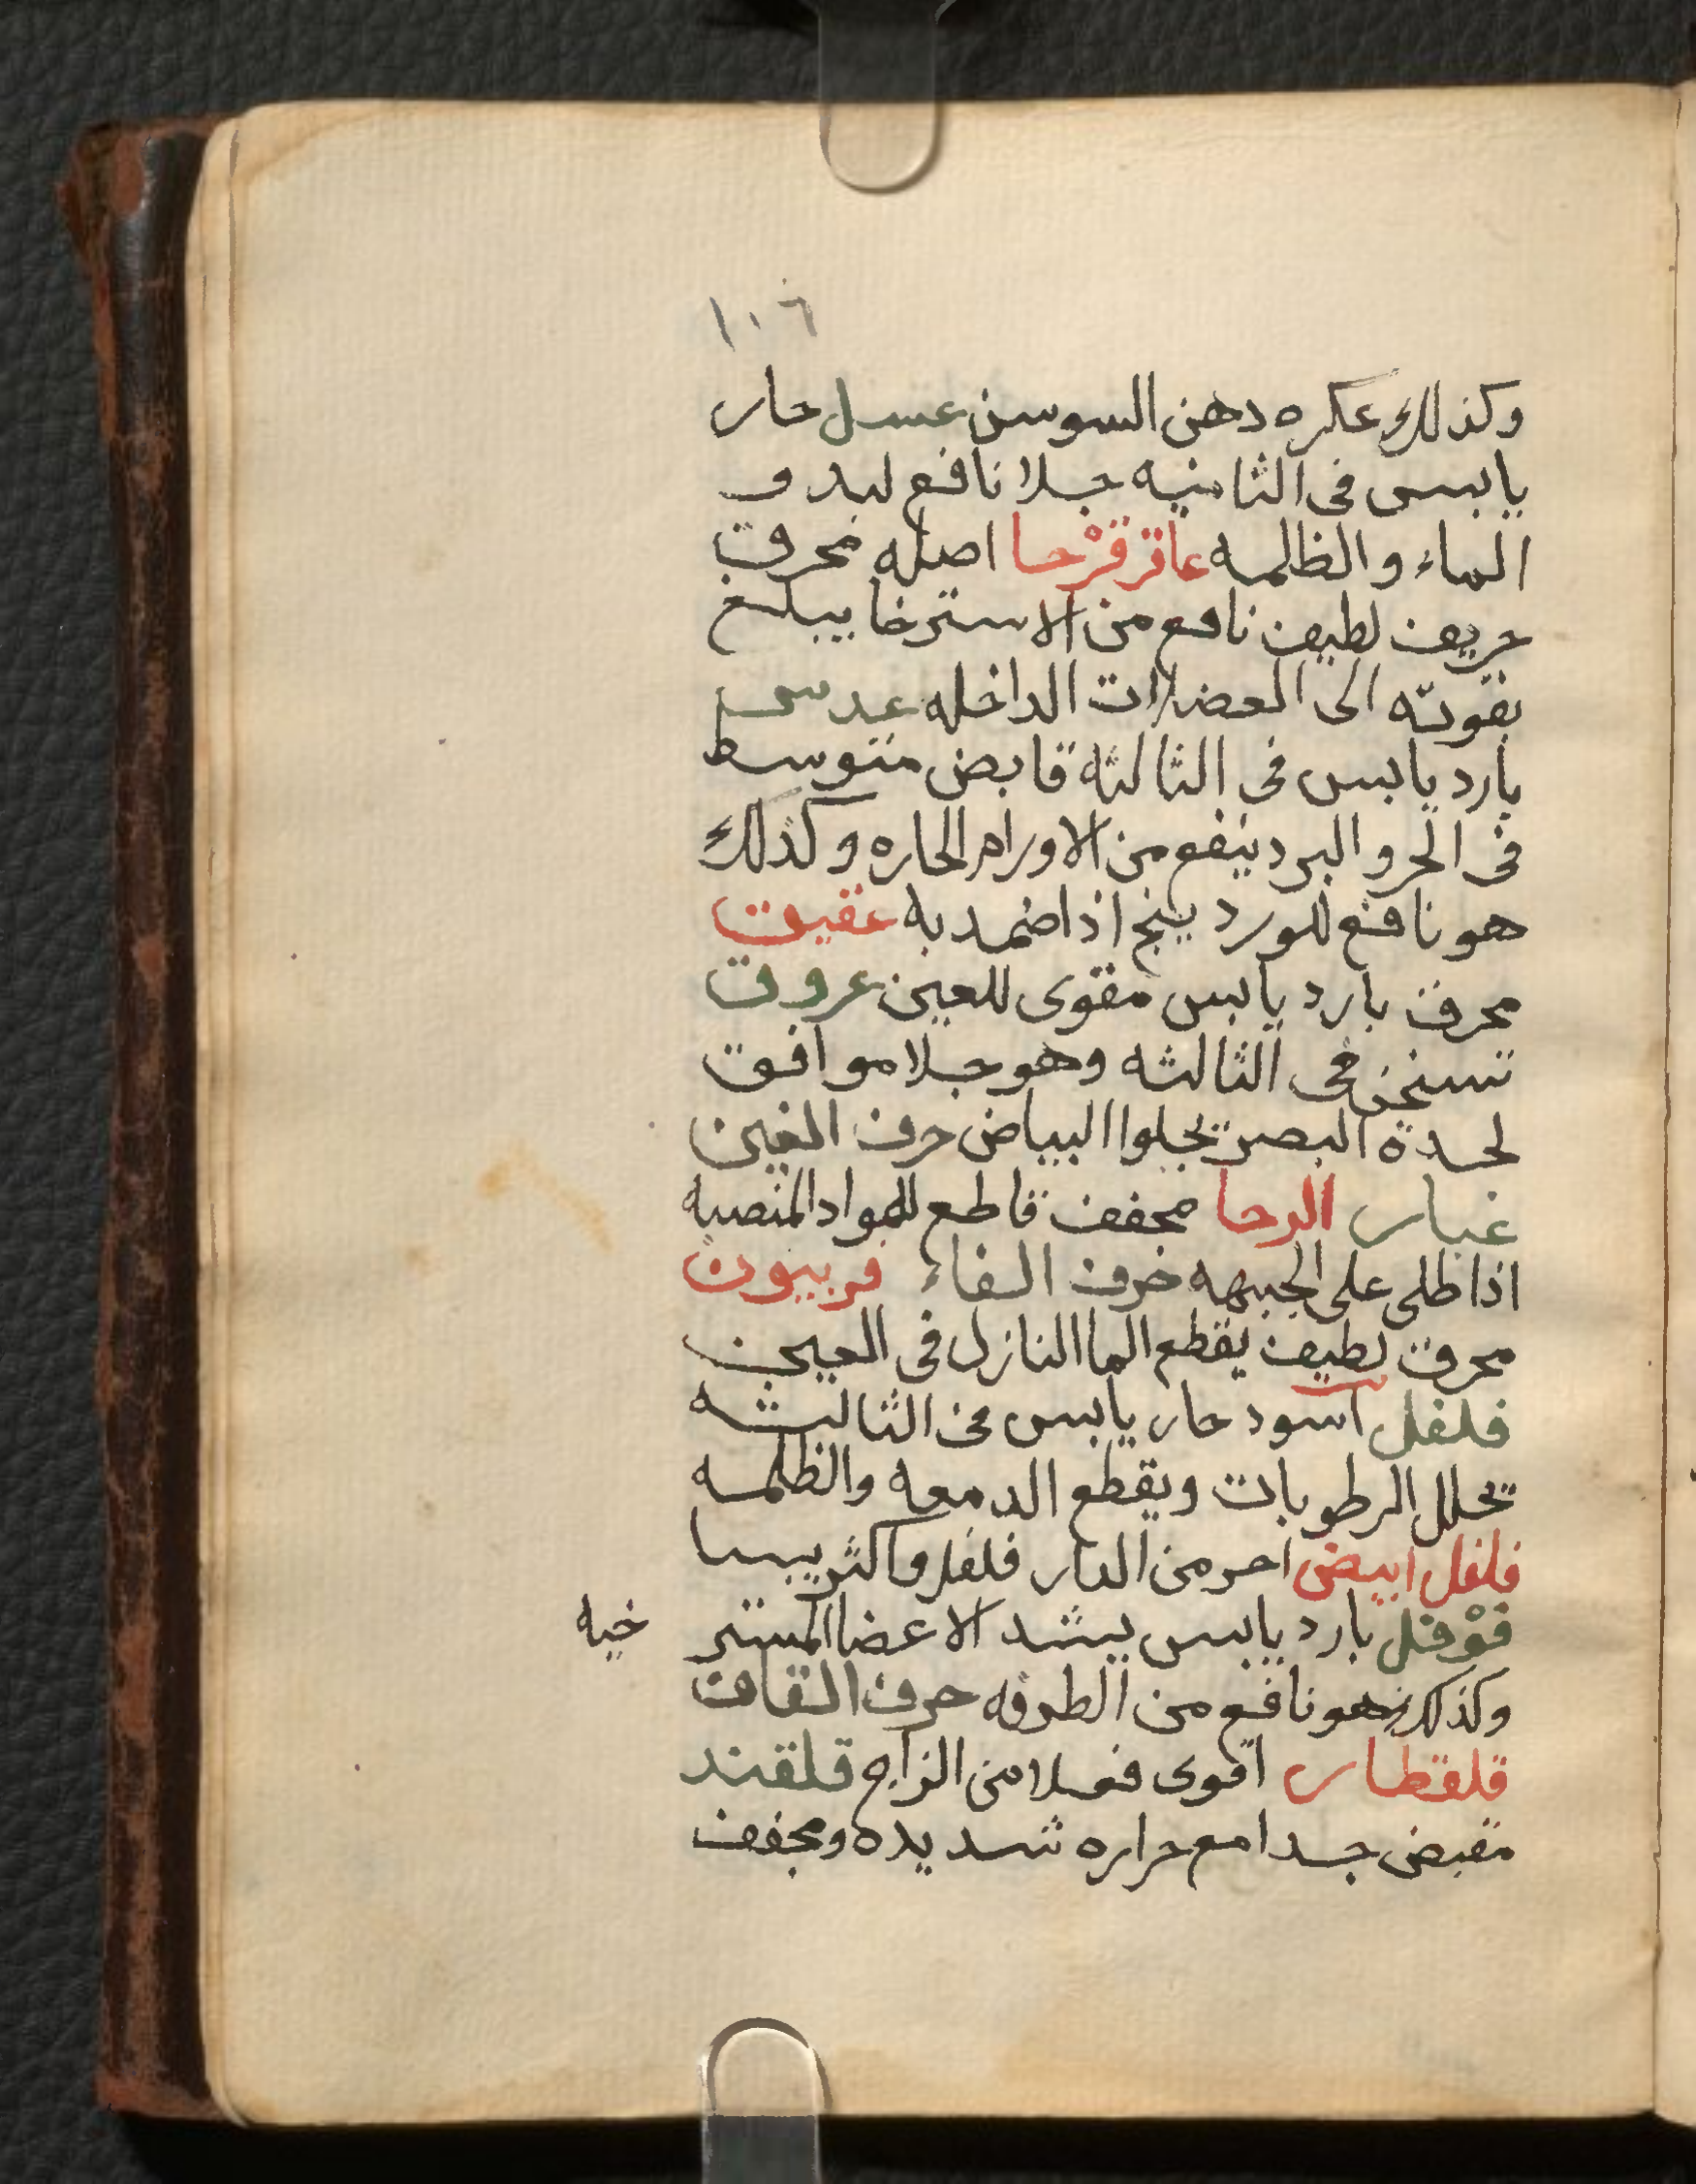 ١٠٦
وكذلك عكره دهن السوسن عسل حار
يابس فى الثانيه جلا نافع لبدو
الماء والظلمه عاقرقرحا اصله محرق
حريف لطيف نافع من الاسترخا يبلغ
بقوته الى العضلات الداخله عدسى
بارد يابس فى الثالثه قابض متوسط
فى الحر والبرد ينفع من الاورام الحاره وكذلك
هو نافع للورد ينج اذا ضمد به عقيق
محرق بارد يابس مقوى للعين عروق
تسخن فى الثالثه وهو جلا موافق
لحدة البصر يجلوا البياض حرف الغين
غبار الرحا مجفف قاطع للمواد المنصبه
اذا طلى على الجبهه حرف الفاء فربيون
محرق لطيف يقطع الما النازل فى العين
فلفل اسود حار يابس فى الثالثه
يحلل الرطوبات ويقطع الدمعه والظلمه
فلفل ابيض احر من الدار فلفل واكثر يبسا
فوفل بارد يابس يشد الاعضا المستر
خيه
وكذلك هو نافع من الطرفه حرف القاف
قلقطار اقوى فعلا من الزاج قلقند
مقبض جدا مع حراره شديده ومجفف